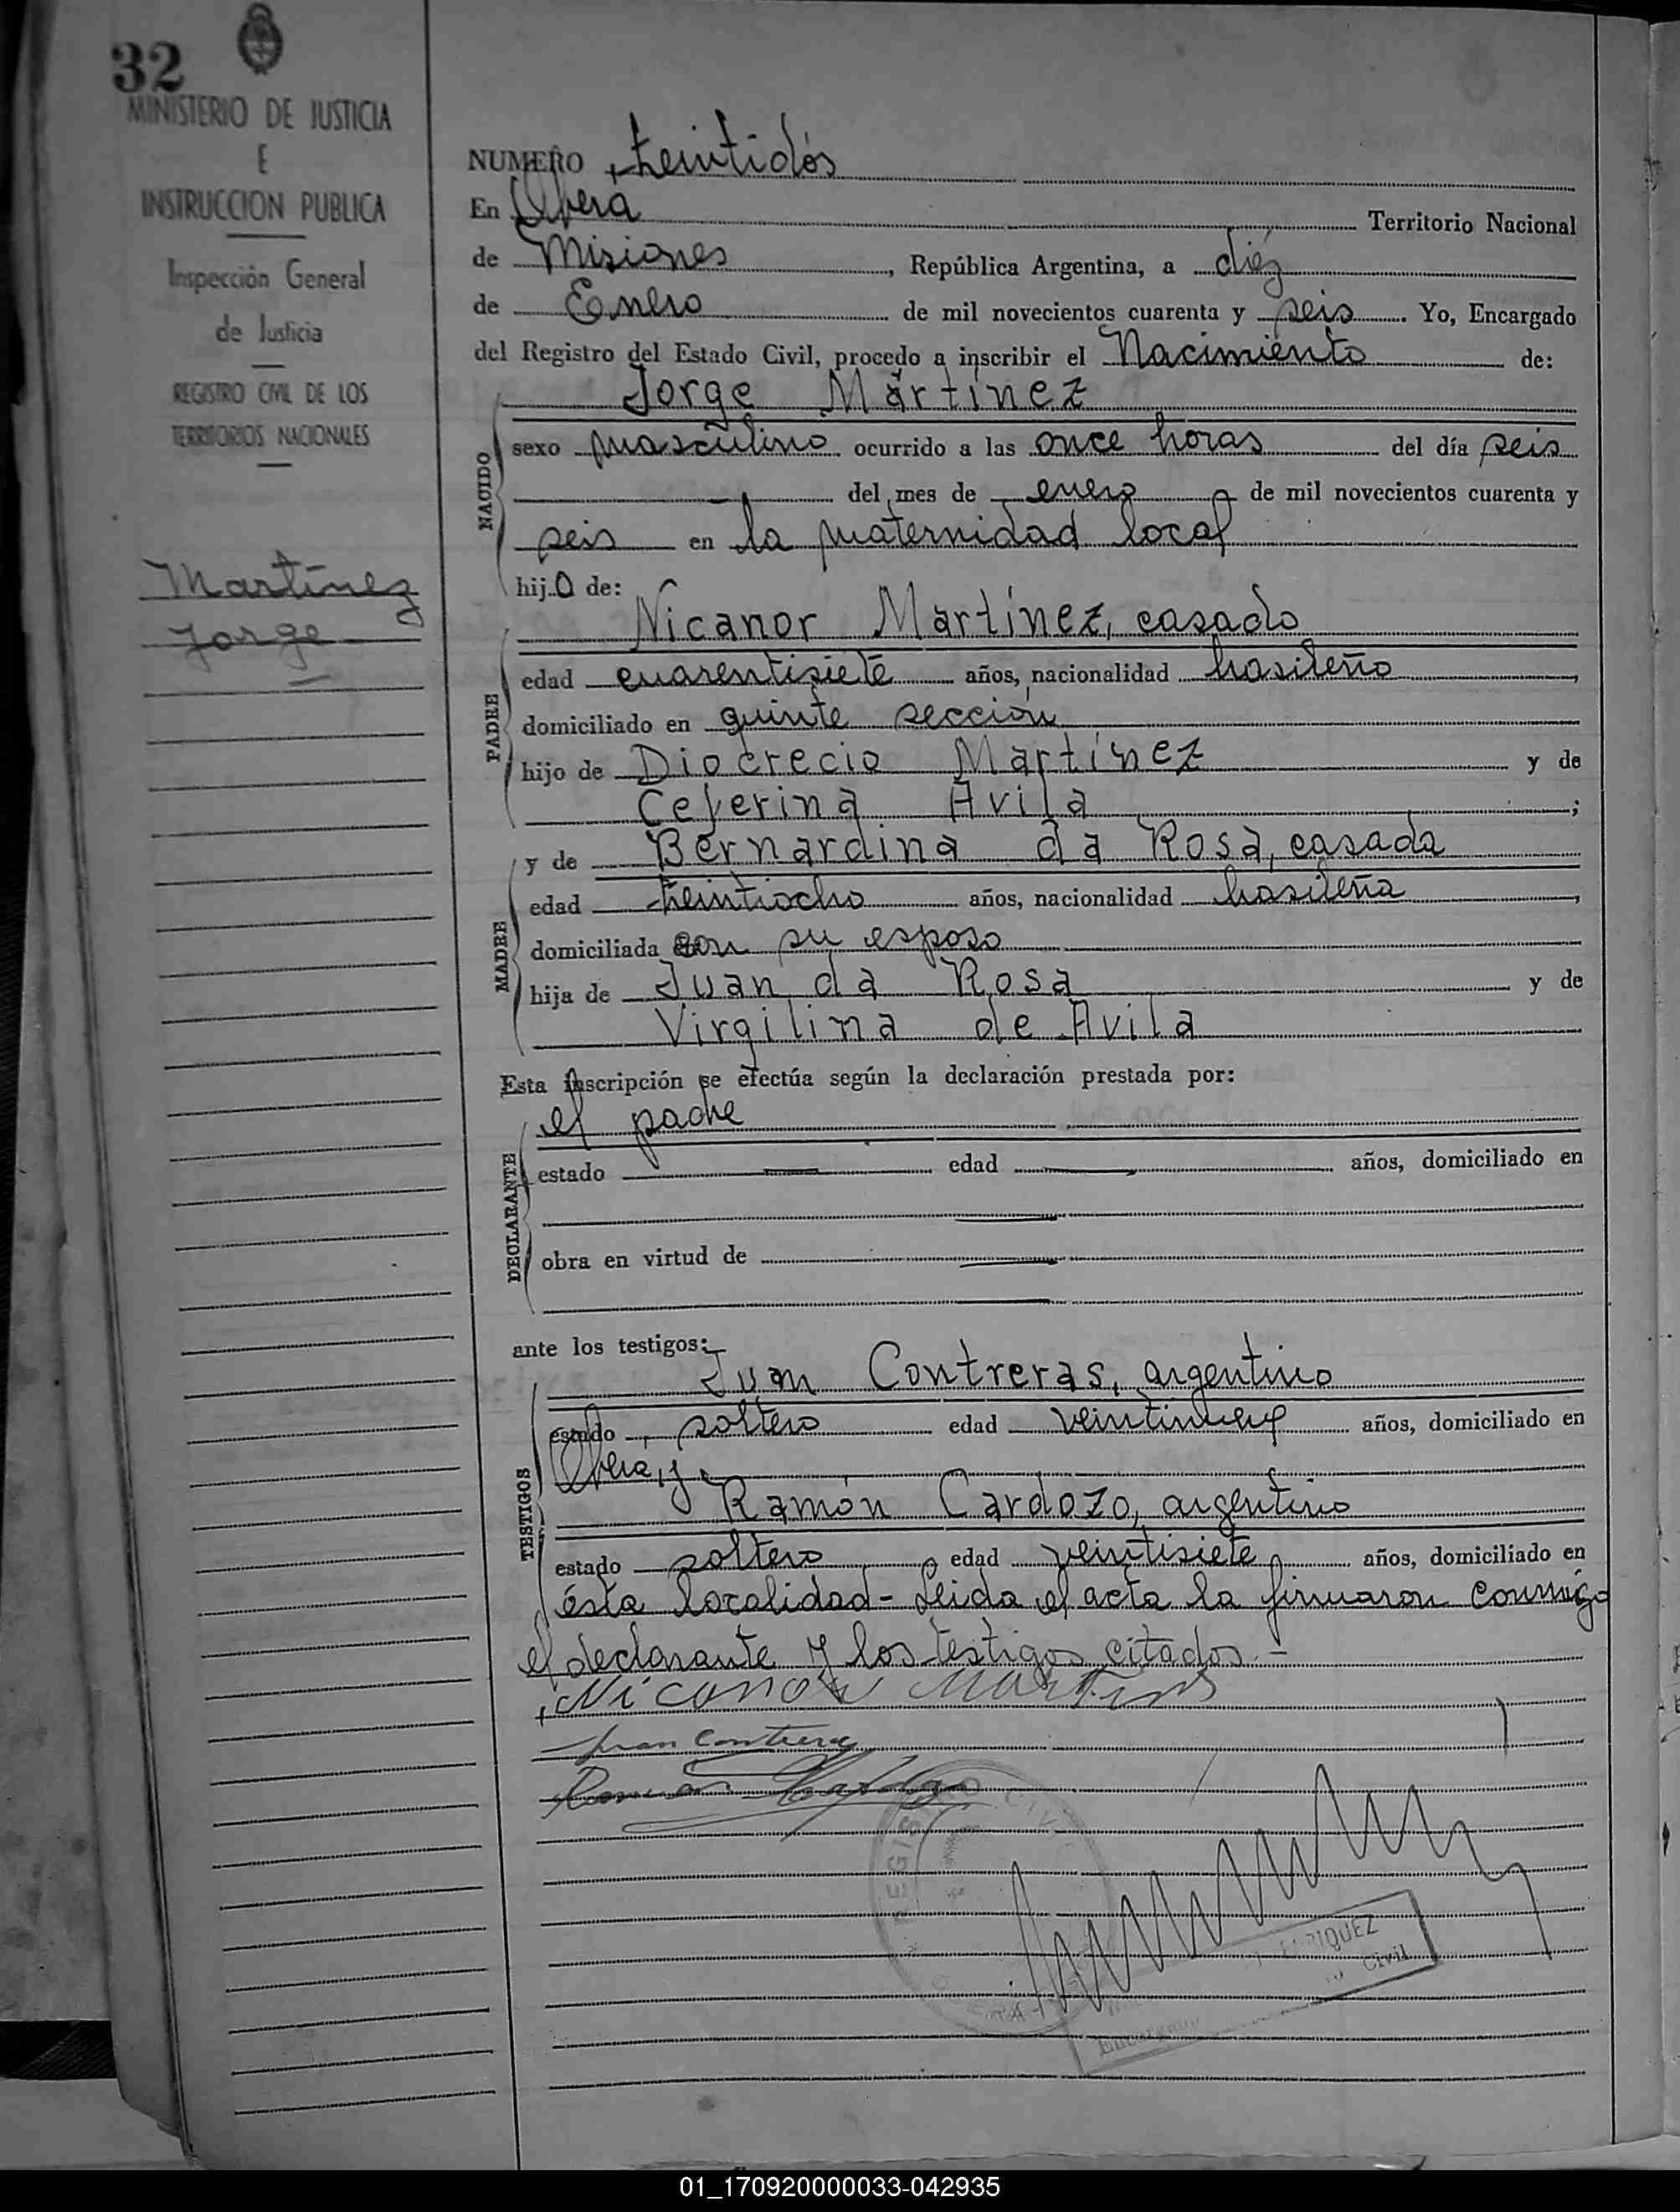 32
MINISTERIO DE JUSTICIA
E
INSTRUCCION PUBLICA
Inspección General
de Justicia
REGISTRO CIVIL DE LOS
TERRITORIOS NACIONALES
Martínez
Jorge
NUMERO treintidós
En Obera Territorio Nacional
de Misiones, República Argentina, a diéz
de Enero de mil novecientos cuarenta y seis. Yo, Encargado
del Registro del Estado Civil, procedo a inscribir el Nacimiento de:
Jorge Martínez
NACIDO
sexo masculino ocurrido a las once horas del día seis
del mes de enero de mil novecientos cuarenta y
seis en la maternidad local
hijo de:
Nicanor Martínez, casado
PADRE
edad cuarentisiete años, nacionalidad brasileño,
domiciliado en quinte sección
hijo de Diocrecio Martínez y de
Ceferina Avila;
y de Bernardina da Rosa, casada
MADRE
edad treintiocho años, nacionalidad brasileña,
domiciliada con su esposo
hija de Juan da Rosa y de
Virgilina de Avila
Esta inscripción se efectúa según la declaración prestada por:
el padre
DECLARANTE
estado — edad — años, domiciliado en
obra en virtud de
ante los testigos:
Juan Contreras, argentino
TESTIGOS
estado soltero edad veintinueve años, domiciliado en
Obera, y
Ramón Cardozo, argentino
estado soltero edad veintisiete años, domiciliado en
ésta localidad - Leida el acta la firmaron conmigo
el declarante y los testigos citados. -
Nicanor Martins
Juan Contreras
Ramón Cardozo
REGISTRO CIVIL
Civil
Encargado
01_170920000033-042935